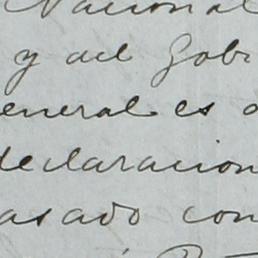 Nacional
y del Gobi
eneral es
declaracion
asado con